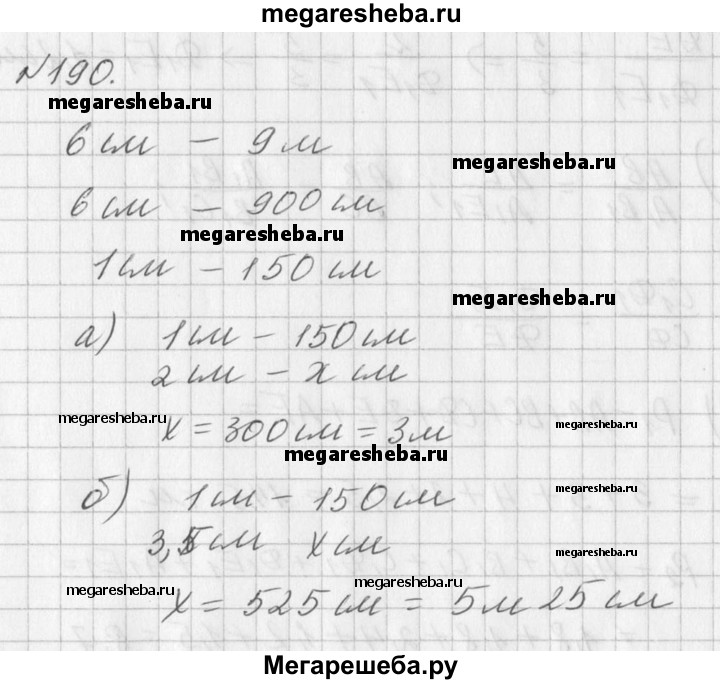 megaresheba.ru
№190.
megaresheba.ru
6 см — 9 м
megaresheba.ru
6 см — 900 см
megaresheba.ru
1 см — 150 см
megaresheba.ru
а) 1 см — 150 см
2 см — x см
megaresheba.ru
x = 300 см = 3 м
megaresheba.ru
megaresheba.ru
б) 1 см — 150 см
megaresheba.ru
3,5 см x см
megaresheba.ru
megaresheba.ru
megaresheba.ru
x = 525 см = 5 м 25 см
Мегарешеба.ру